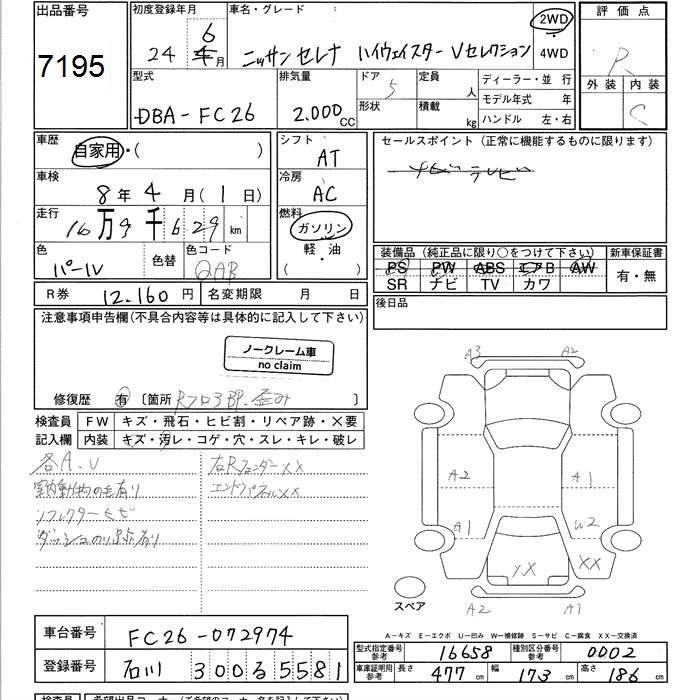 出品番号 初度登録年月 車名・グレード 2WD 評価点
7195 24年 6月 ニッサン セレナ ハイウェイスター Vセレクション 4WD R
型式 排気量 ドア 5 定員 人 ディーラー・並 行 外装 内装
DBA-FC26 2.000cc 形状 積載 kg モデル年式 年 C
ハンドル 左・右
車歴 自家用・( ) シフト AT セールスポイント(正常に機能するものに限ります)
車検 8年 4月(1日) 冷房 AC
走行 16万9千629km 燃料 ガソリン 軽・油 ( )
装備品(純正品に限り○をつけて下さい) 新車保証書
色 パール 色替 色コード QAB PS PW ABS エアB AW 有・無
SR ナビ TV カワ
R券 12.160円 名変期限 月 日 後日品
注意事項申告欄(不具合内容等は具体的に記入して下さい)
ノークレーム車
no claim
修復歴 有 〔箇所 Rフロア BP.歪み
検査員 FW キズ・飛石・ヒビ割・リペア跡・×要
記入欄 内装 キズ・汚レ・コゲ・穴・スレ・キレ・破レ
各A.U 右RフェンダーXX
室内動物の毛有り エンドパネルXX
リフレクターヒビ
A3 A2
A2 A1
A1 U2
XX XX
A2 A1
スペア
A-キズ E-エクボ U-凹み W-補修跡 S-サビ C-腐食 XX-交換済
車台番号 FC26-072974
型式指定番号 参考 16658 種別区分番号 参考 0002
登録番号 石川 300 る 5581
車庫証明用 参考 長さ 477cm 幅 173cm 高さ 186cm